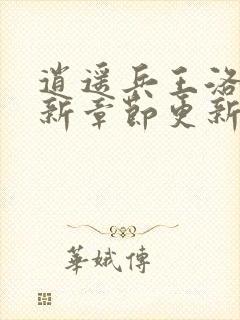 逍遥兵王洛
新章節更新
華娥傳